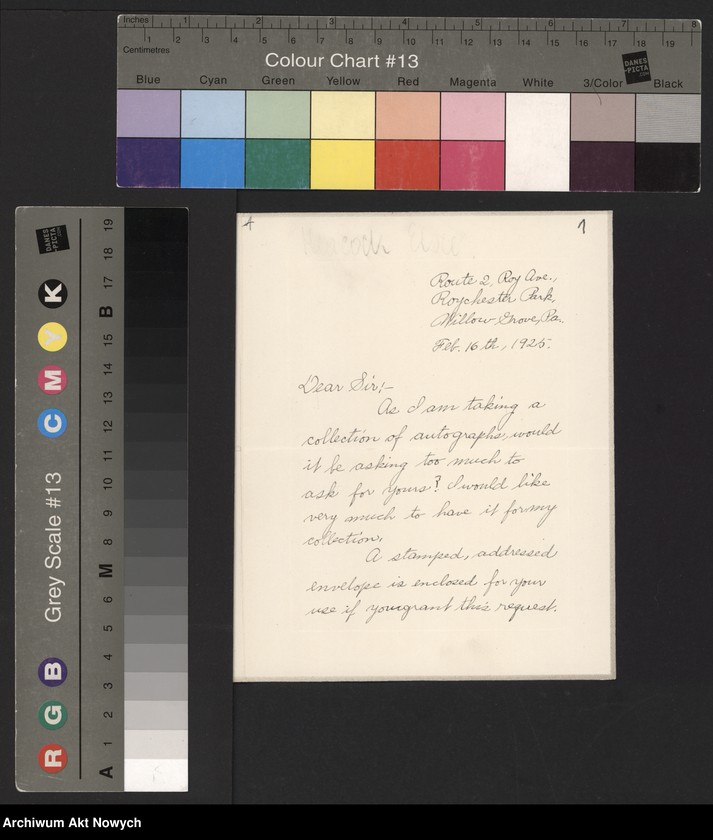 Inches 1 2 3 4 5 6 7 8
Centimetres 1 2 3 4 5 6 7 8 9 10 11 12 13 14 15 16 17 18 19
Colour Chart #13
DANES
-PICTA
.COM
Blue Cyan Green Yellow Red Magenta White 3/Color Black
Grey Scale #13
DANES
-PICTA
.COM
R G B C M Y K
A 1 2 3 4 5 6 M 8 9 10 11 12 13 14 15 B 17 18 19
1
Route 2, Roy Ave.,
Roychester Park,
Willow Grove, Pa.
Feb. 16th, 1925.
Dear Sir:-
As I am taking a
collection of autographs, would
it be asking too much to
ask for yours? I would like
very much to have it for my
collection.
A stamped, addressed
envelope is enclosed for your
use if you grant this request.
Archiwum Akt Nowych